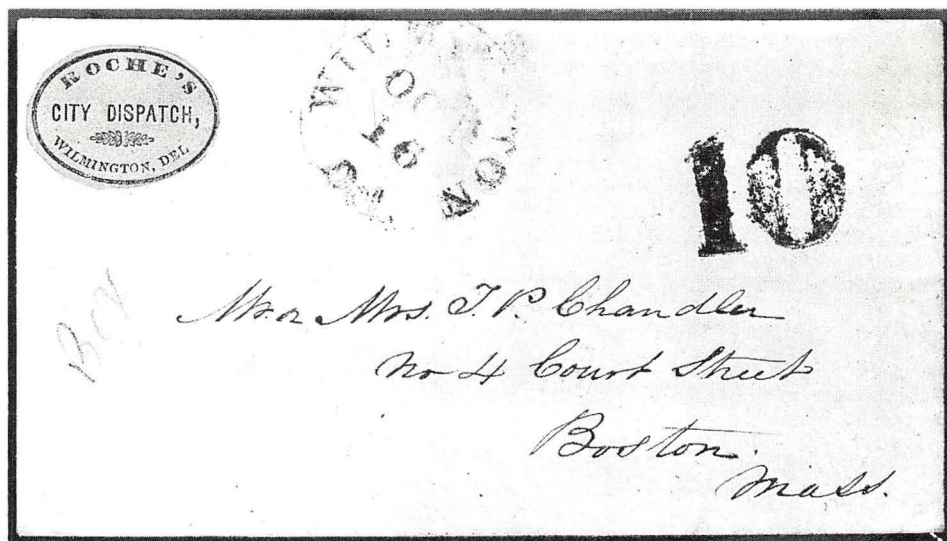 ROCHE'S
CITY DISPATCH,
WILMINGTON, DEL
10
Mr. & Mrs. T. P. Chandler
No 4 Court Street
Boston.
Mass.